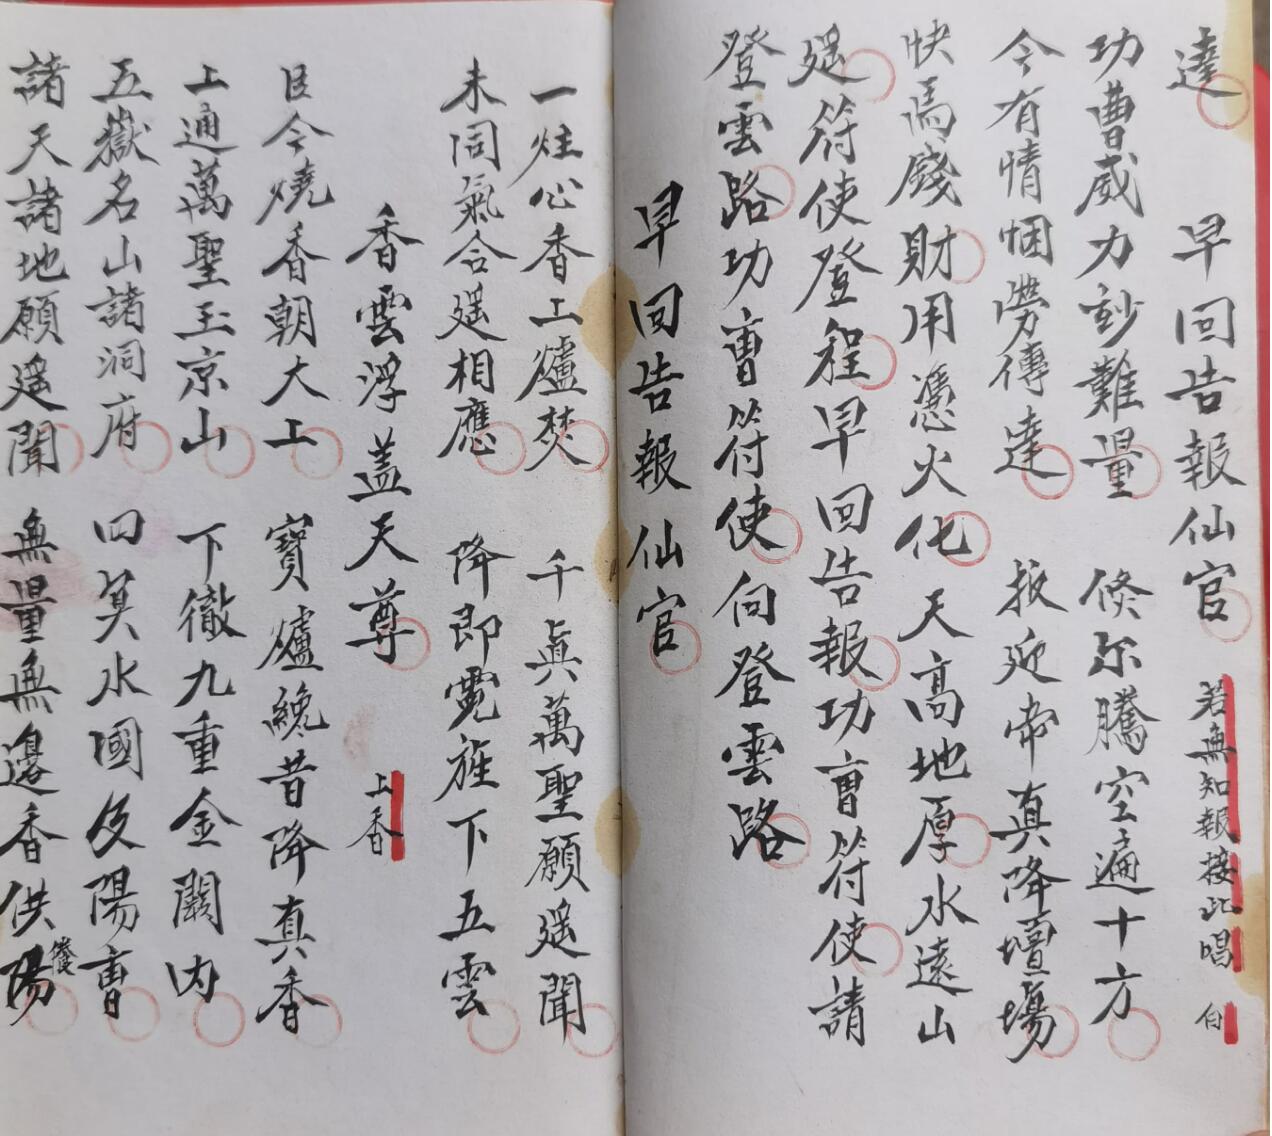 達 早回告報仙官 若無知報接此唱 白
功曹威力玅難量 倐尔騰空遍十方
今有情悃勞傳達 扳迎帝真降壇場
快馬錢財用憑火化天高地厚水遠山
遥符使登程早回告報功曹符使請
登雲路功曹符使向登雲路
早回告報仙官
一炷心香上爐焚 千眞萬聖願遥聞
未同氣合遥相應 降即霓旌下五雲
香雲浮盖天尊 上香
臣今燒香朝大上 寶爐纔昔降真香
上通萬聖玉京山 下徹九重金闕内
五嶽名山諸洞府 四冥水國及陽曹
諸天諸地願遥聞 無量無邊香供陽